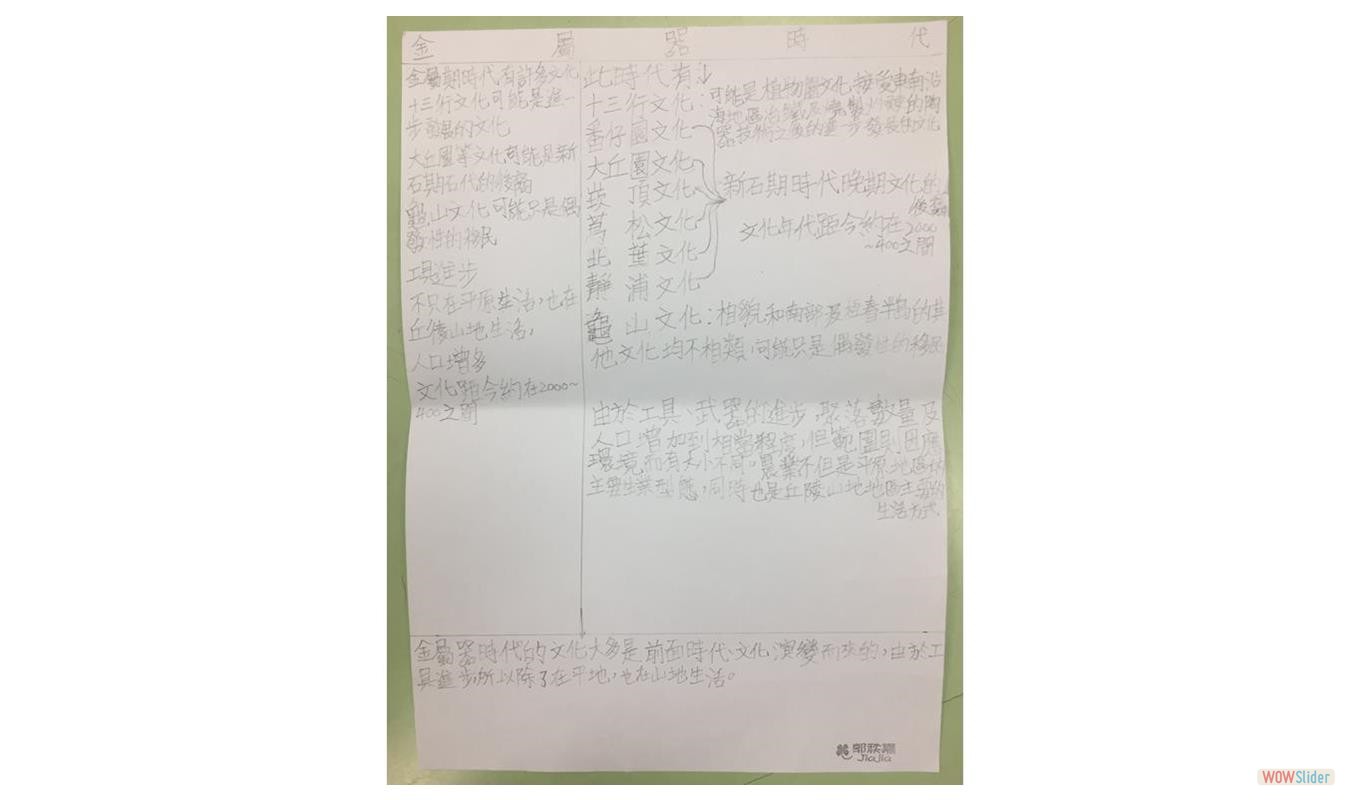 金屬器時代
金屬期時代有許多文化
十三行文化可能是進一
步發展的文化
大丘園等文化可能是新
石期石代的後裔
龜山文化可能只是偶
發性的移民
工具進步
不只在平原生活,也在
丘陵山地生活,
人口增多
文化距今約在2000~
400之間
此時代有↓
十三行文化:可能是植物園文化接受東南沿
海地區冶鐵及燒製的陶
器技術之後的進一步發展的文化
番仔園文化
大丘園文化
崁頂文化
蔦松文化
北葉文化
靜浦文化
新石期時代晚期文化的
後裔
文化年代距今約在2000
~400之間
龜山文化:相貌和南部及恆春半島的其
他文化均不相類,可能只是偶發性的移民
由於工具、武器的進步,聚落數量及
人口增加到相當程度,但範圍則因應
環境而有大小不同。農業不但是平原地區的
主要生業型態,同時也是丘陵山地地區主要的
生活方式
金屬器時代的文化大多是前面時代文化演變而來的,由於工
具進步,所以除了在平地,也在山地生活。
郭耿嘉
JiaJia
WOWSlider